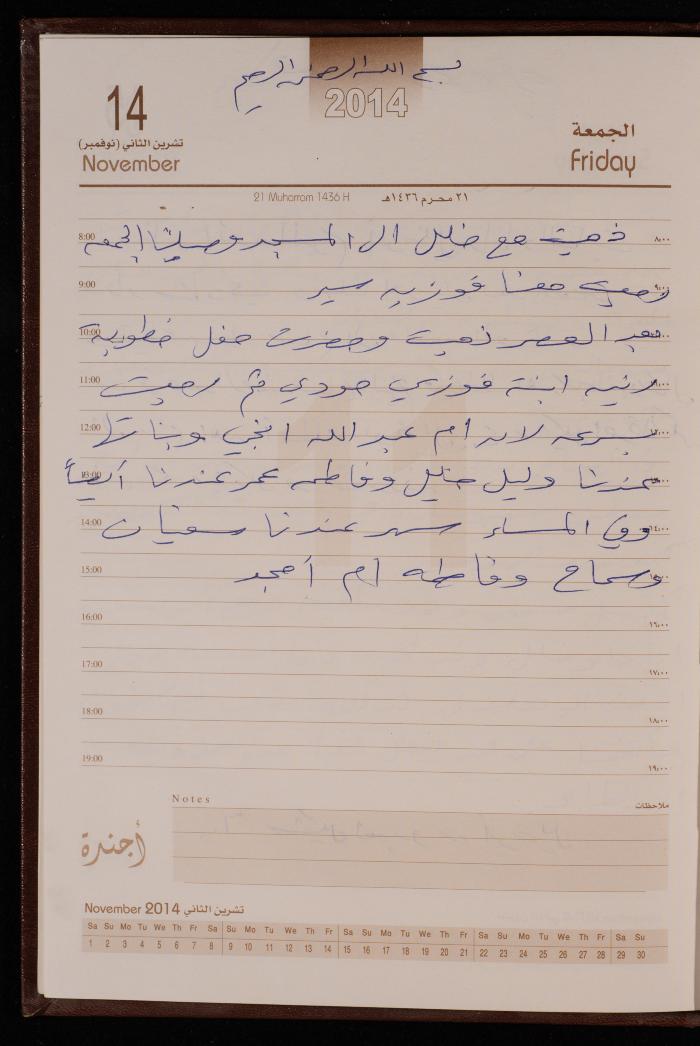 بسم الله الرحمن الرحيم
2014
14
تشرين الثاني (نوفمبر)
November
الجمعة
Friday
21 Muharram 1436 H
٢١ محرم ١٤٣٦هـ
8:00 ذهبت مع خليل الى المسجد وصلينا الجمعه ٨:٠٠
9:00 معنا فوزيه سير ٩:٠٠
10:00 بعد العصر ذهبت وحضرت حفل خطوبة
11:00 رانيه ابنة فوزي حودي ثم رجعت
12:00 بسرعه لان ام عبد الله اختي وبناتها
13:00 عندنا وليل خليل وفاطمه عمر عندنا أيضاً
14:00 وفي المساء سهر عندنا سفيان ١٤:٠٠
15:00 وسماح وفاطمه ام أمجد
16:00 ١٦:٠٠
17:00 ١٧:٠٠
18:00 ١٨:٠٠
19:00 ١٩:٠٠
Notes ملاحظات
أجندة
November 2014 تشرين الثاني (نوفمبر)
Sa Su Mo Tu We Th Fr Sa Su Mo Tu We Th Fr Sa Su Mo Tu We Th Fr Sa Su Mo Tu We Th Fr Sa Su
1 2 3 4 5 6 7 8 9 10 11 12 13 14 15 16 17 18 19 20 21 22 23 24 25 26 27 28 29 30